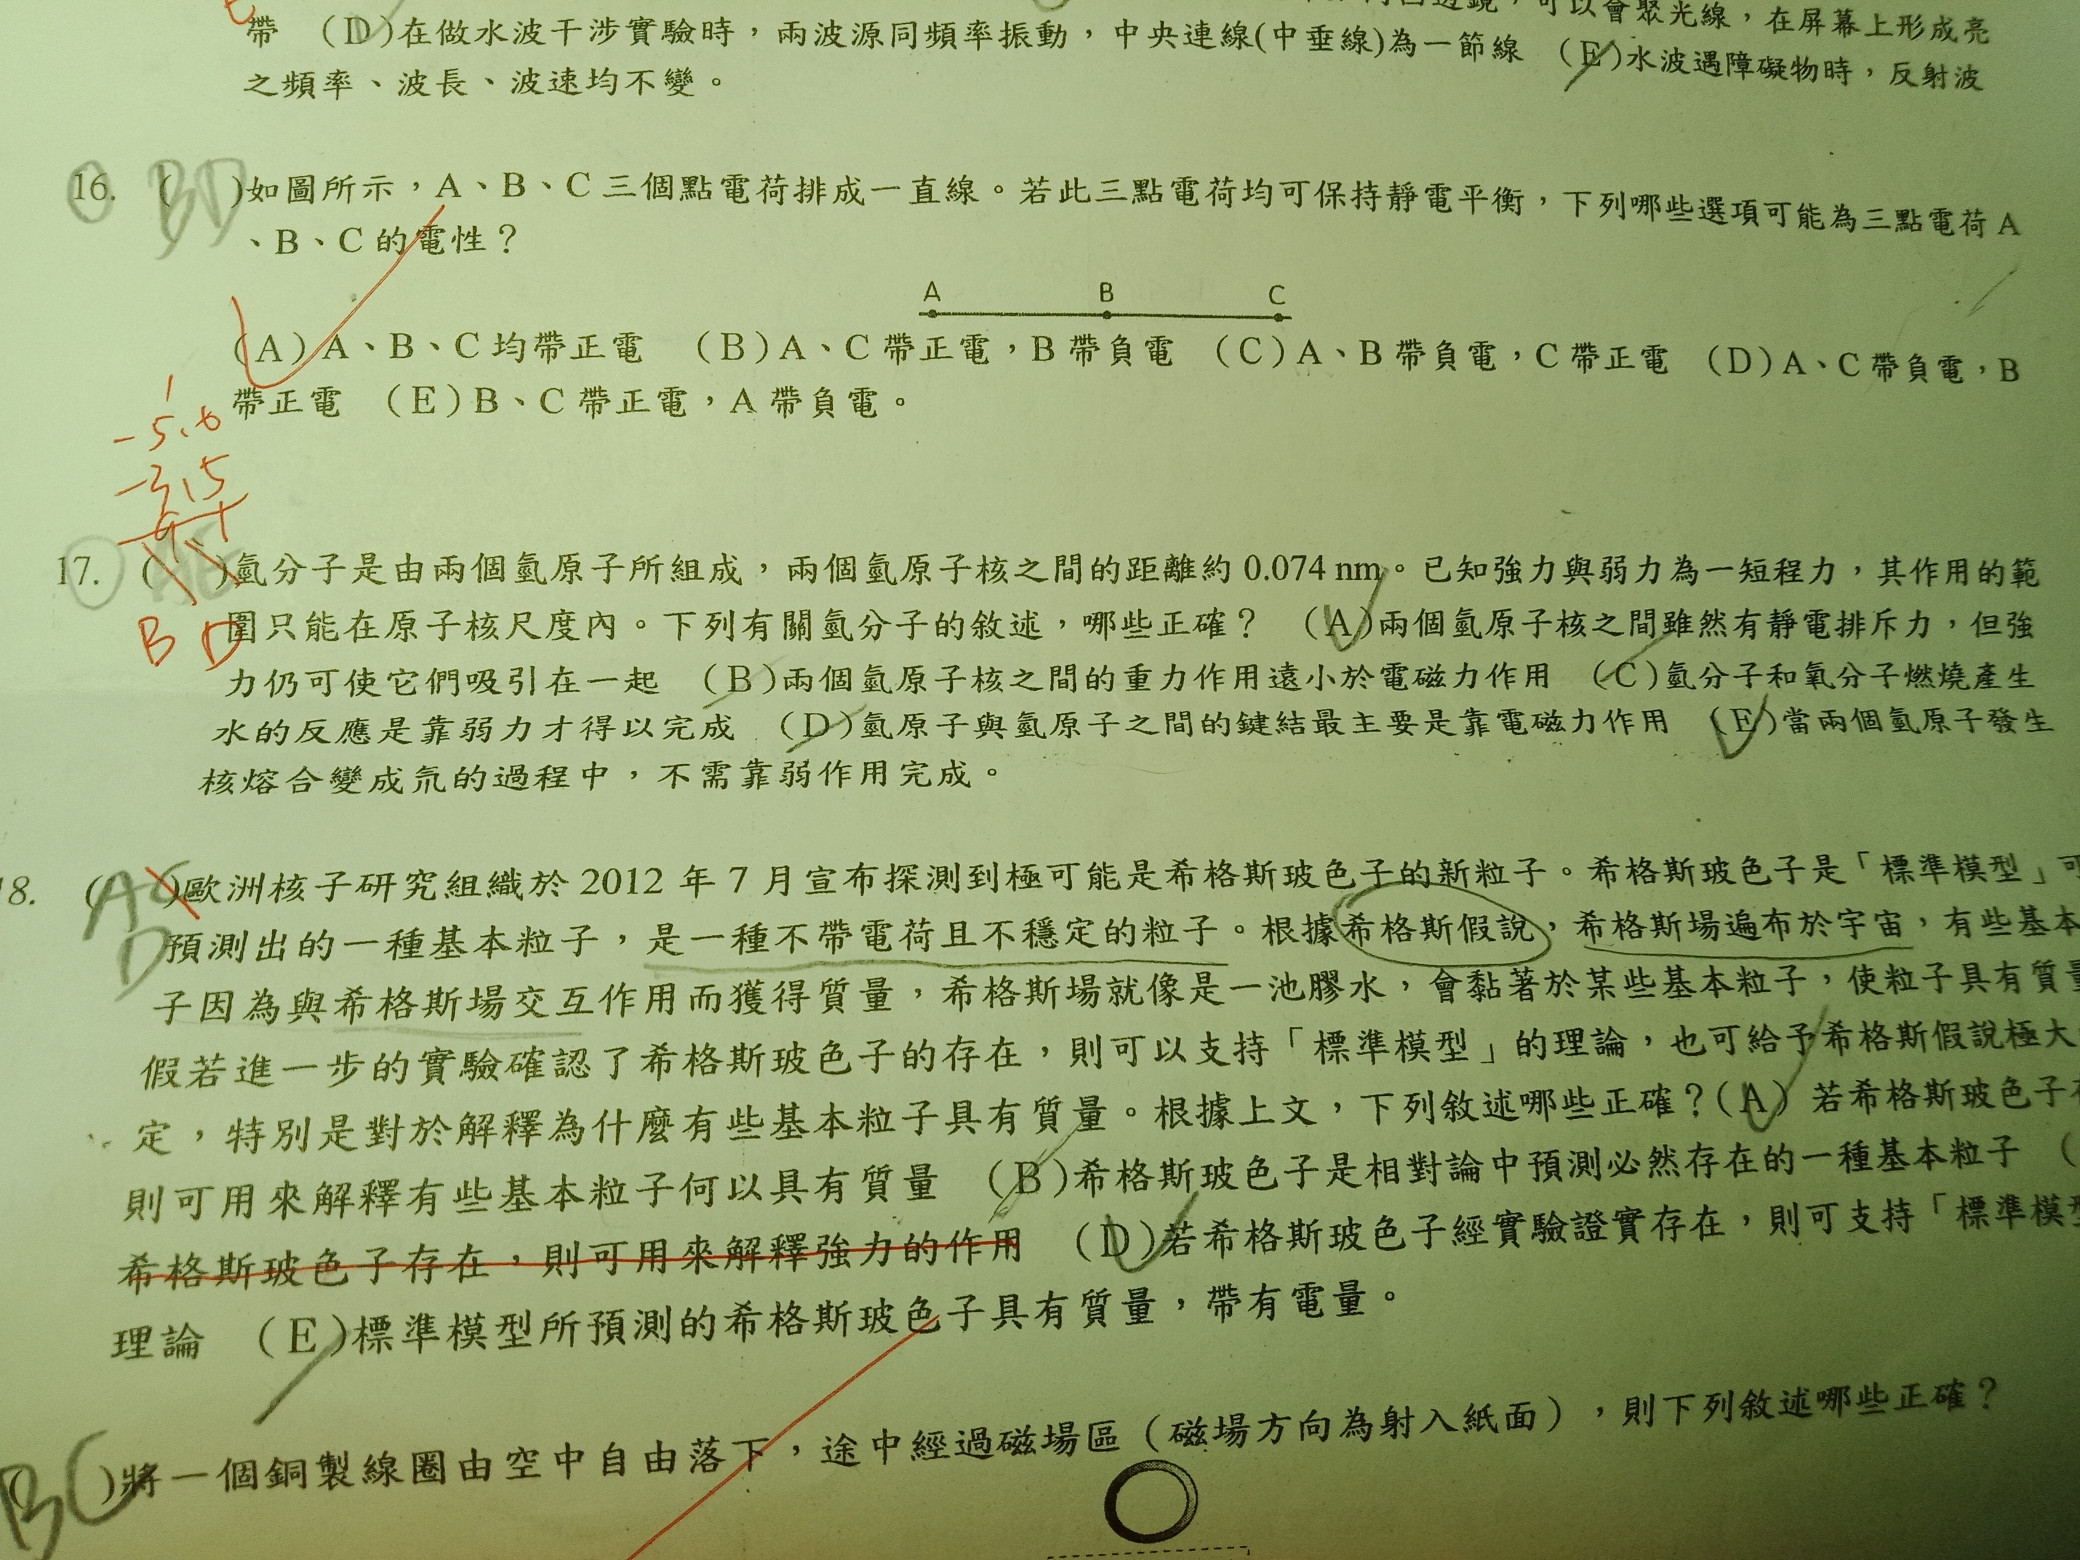 可以會聚光線，在屏幕上形成亮
帶 (D)在做水波干涉實驗時，兩波源同頻率振動，中央連線(中垂線)為一節線 (E)水波遇障礙物時，反射波
之頻率、波長、波速均不變。
16. ( BD )如圖所示，A、B、C三個點電荷排成一直線。若此三點電荷均可保持靜電平衡，下列哪些選項可能為三點電荷A
、B、C的電性？
A B C
(A)A、B、C均帶正電 (B)A、C帶正電，B帶負電 (C)A、B帶負電，C帶正電 (D)A、C帶負電，B
帶正電 (E)B、C帶正電，A帶負電。
17. ( )氫分子是由兩個氫原子所組成，兩個氫原子核之間的距離約0.074 nm。已知強力與弱力為一短程力，其作用的範
B D
圍只能在原子核尺度內。下列有關氫分子的敘述，哪些正確？ (A)兩個氫原子核之間雖然有靜電排斥力，但強
力仍可使它們吸引在一起 (B)兩個氫原子核之間的重力作用遠小於電磁力作用 (C)氫分子和氧分子燃燒產生
水的反應是靠弱力才得以完成 (D)氫原子與氫原子之間的鍵結最主要是靠電磁力作用 (E)當兩個氫原子發生
核熔合變成氘的過程中，不需靠弱作用完成。
8. ( A D )歐洲核子研究組織於2012年7月宣布探測到極可能是希格斯玻色子的新粒子。希格斯玻色子是「標準模型」
預測出的一種基本粒子，是一種不帶電荷且不穩定的粒子。根據希格斯假說，希格斯場遍布於宇宙，有些基本
子因為與希格斯場交互作用而獲得質量，希格斯場就像是一池膠水，會黏著於某些基本粒子，使粒子具有質量
假若進一步的實驗確認了希格斯玻色子的存在，則可以支持「標準模型」的理論，也可給予希格斯假說極大
定，特別是對於解釋為什麼有些基本粒子具有質量。根據上文，下列敘述哪些正確？(A) 若希格斯玻色子
則可用來解釋有些基本粒子何以具有質量 (B)希格斯玻色子是相對論中預測必然存在的一種基本粒子 (
希格斯玻色子存在，則可用來解釋強力的作用 (D)若希格斯玻色子經實驗證實存在，則可支持「標準模型
理論 (E)標準模型所預測的希格斯玻色子具有質量，帶有電量。
( BC )將一個銅製線圈由空中自由落下，途中經過磁場區（磁場方向為射入紙面），則下列敘述哪些正確？